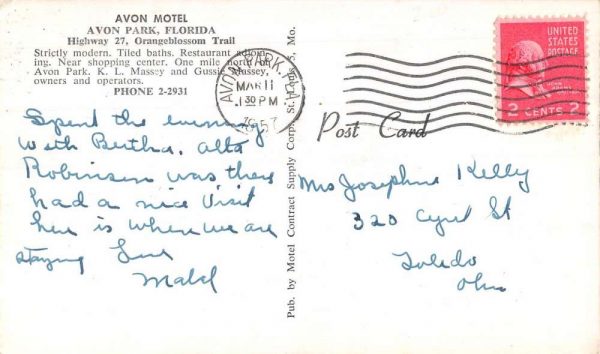 AVON MOTEL
AVON PARK, FLORIDA
Highway 27, Orangeblossom Trail
Strictly modern. Tiled baths. Restaurant adjoin-
ing. Near shopping center. One mile north of
Avon Park. K. L. Massey and Gussie Massey,
owners and operators.
PHONE 2-2931
Spent the evening
with Bertha. alta
Robinson was there
had a nice visit
here is where we are
staying Love
Mabel
Pub. by Motel Contract Supply Corp., St. Louis 5, Mo.
AVON PARK, FLA.
MAR 11
1 30 PM
1957
Post Card
UNITED
STATES
POSTAGE
JOHN
ADAMS
2 CENTS 2
Mrs Josephine Kelly
320 St
Toledo
Ohio